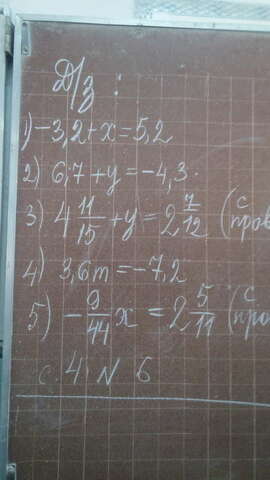 Д/з :
1) -3,2+x=5,2
2) 6,7+y=-4,3.
3) 4 11/15 +y= 2 7/12 (с пров
4) 3,6m=-7,2
5) -9/44 x = 2 5/11 (с пров
с. 41 N 6